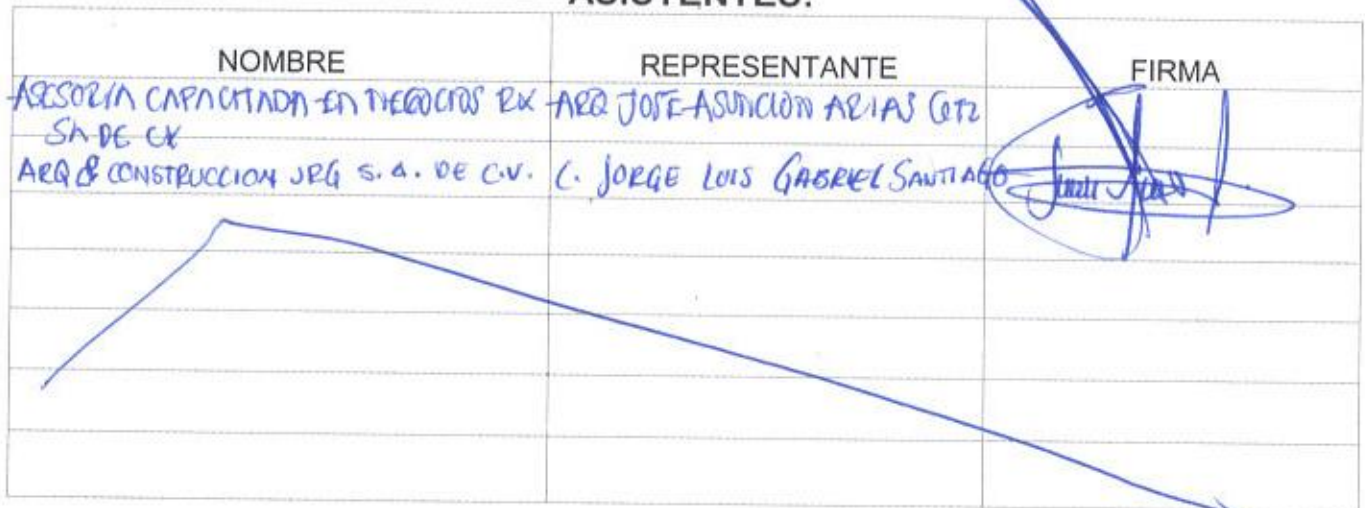 ASISTENTES:
NOMBRE REPRESENTANTE FIRMA
ASESORIA CAPACITADA EN NEGOCIOS RX ARQ JOSE ASUNCION ARIAS
SA DE CV
ARQ & CONSTRUCCION JRG S.A. DE C.V. C. JORGE LUIS GABRIEL SANTIAGO